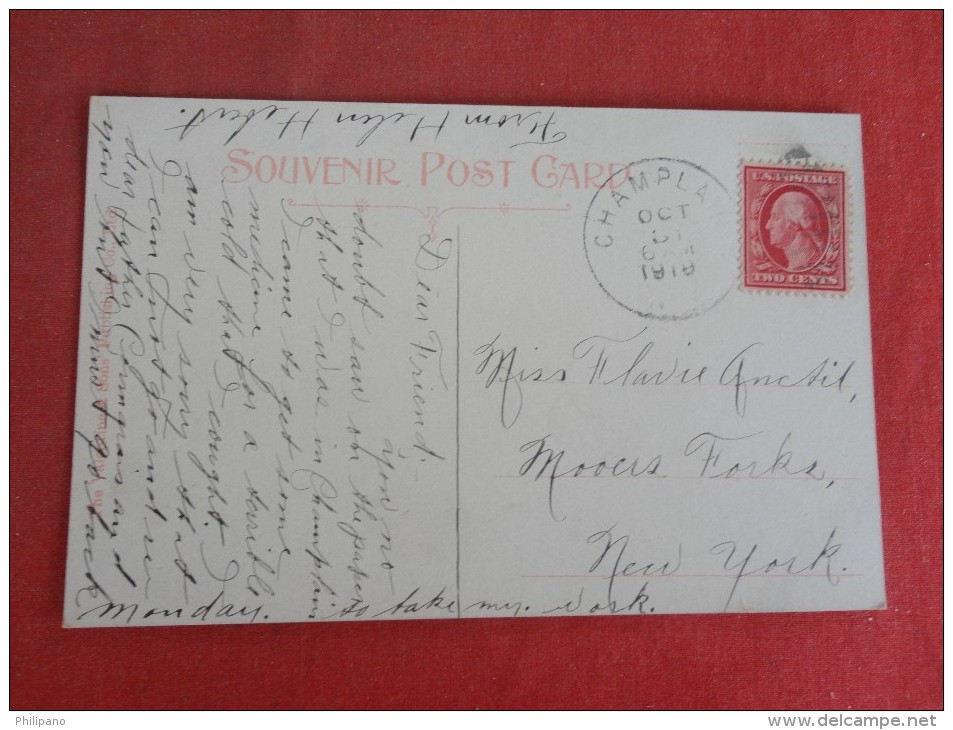 SOUVENIR POST CARD
CHAMPLA
OCT
31
6 AM
1918
U.S. POSTAGE
TWO CENTS
Miss Flavie Anctil,
Mooers Forks,
New York.
Dear Friend:-
You no
doubt saw on the paper
that I was in Champlain
I came to get some
medicine for a terrible
cold that I caught. I
am very sorry that
I can not go and see
dear Father Campeau and
you but must go back
Monday. to take my work.
From Helen Hebert.
Sons Publishing Co.
Philipano
www.delcampe.net